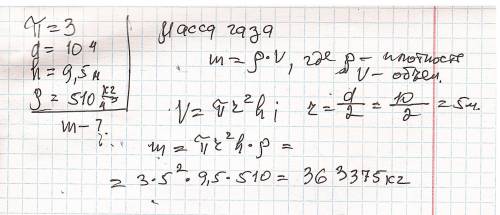 π = 3
d = 10 м
h = 9,5 м
ρ = 510 кг/м³
m - ?
Масса газа
m = ρ·V, где ρ - плотность
V - объем.
V = πr²h; r = d/2 = 10/2 = 5м.
m = πr²h·ρ =
= 3·5²·9,5·510 = 363375кг